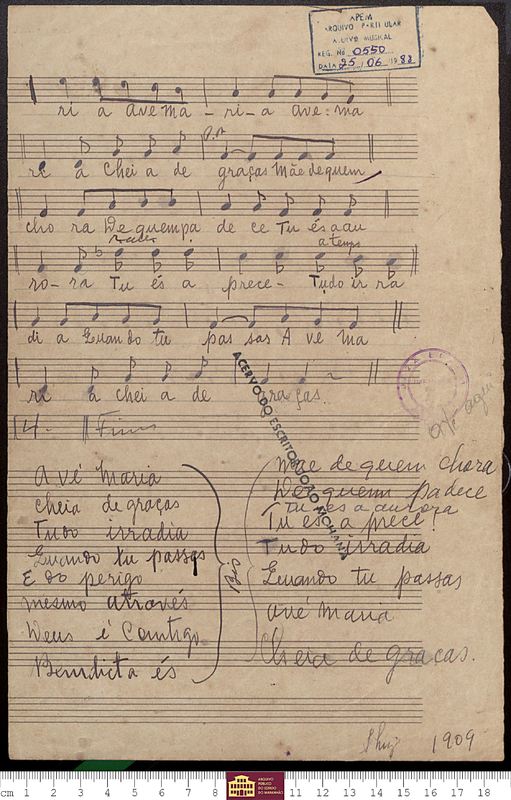 APEM
ARQUIVO PARTICULAR
ACERVO MUSICAL
REG. Nº 0550
DATA 25 / 06 / 1988
ri a Ave Ma - ri - a Ave: ma
ri a Chei a de graças Mãe de quem
cho ra De quem pa de ce Tu és a au
a tempo
ro - ra Tu és a prece - Tudo ir ra
di a Quando tu pas sas A vé Ma
ri a chei a de graças.
ACERVO DO ESCRITOR JOÃO MOHANA
até aqui
4 - Fim
Avé Maria
cheia de graças
Tudo irradia
Quando tu passas
E do perigo
mesmo através
Deus é Comtigo
Benedicta és
Bis
Mãe de quem chora
De quem padece
Tu és a aurora
Tu és a prece!
Tudo irradia
Quando tu passas
avé Maria
Cheia de graças.
1909
cm 1 2 3 4 5 6 7 8 11 12 13 14 15 16 17 18
ARQUIVO
PÚBLICO
DO ESTADO
DO MARANHÃO